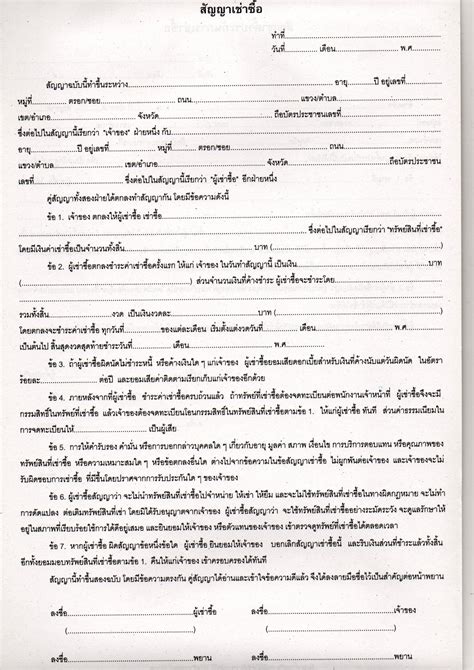 สัญญาเช่าซื้อ
ทำที่........................................
วันที่............ เดือน........................พ.ศ..............
สัญญาฉบับนี้ทำขึ้นระหว่าง........................................อายุ............ปี อยู่เลขที่............
หมู่ที่............ ตรอก/ซอย........................ ถนน........................แขวง/ตำบล........................
เขต/อำเภอ........................จังหวัด........................ ถือบัตรประชาชนเลขที่........................
ซึ่งต่อไปในสัญญานี้เรียกว่า "เจ้าของ" ฝ่ายหนึ่ง กับ........................................
อายุ............ปี อยู่เลขที่............ หมู่ที่............ ตรอก/ซอย........................ถนน........................
แขวง/ตำบล........................เขต/อำเภอ........................จังหวัด........................ถือบัตรประชาชน
เลขที่........................ซึ่งต่อไปในสัญญานี้เรียกว่า "ผู้เช่าซื้อ" อีกฝ่ายหนึ่ง
คู่สัญญาทั้งสองฝ่ายได้ตกลงทำสัญญากัน โดยมีข้อความดังนี้
ข้อ 1. เจ้าของ ตกลงให้ผู้เช่าซื้อ เช่าซื้อ........................................
........................................ ซึ่งต่อไปในสัญญาเรียกว่า "ทรัพย์สินที่เช่าซื้อ"
โดยมีเงินค่าเช่าซื้อเป็นจำนวนทั้งสิ้น........................บาท (........................................)
ข้อ 2. ผู้เช่าซื้อตกลงชำระค่าเช่าซื้อครั้งแรก ให้แก่ เจ้าของ ในวันทำสัญญานี้ เป็นเงิน........................บาท
(........................................) ส่วนจำนวนเงินที่ค้างชำระ ผู้เช่าซื้อจะชำระโดย........................
........................................
รวมทั้งสิ้น............งวด เป็นเงินงวดละ........................บาท (........................................)
โดยตกลงจะชำระค่าเช่าซื้อ ทุกวันที่............ของแต่ละเดือน เริ่มตั้งแต่งวดวันที่............ เดือน........................พ.ศ............
เป็นต้นไป สิ้นสุดงวดสุดท้ายชำระวันที่............เดือน........................พ.ศ............
ข้อ 3. ถ้าผู้เช่าซื้อผิดนัดไม่ชำระหนี้ หรือค้างเงินใด ๆ แก่เจ้าของ ผู้เช่าซื้อยอมเสียดอกเบี้ยสำหรับเงินที่ค้างนับแต่วันผิดนัด ในอัตรา
ร้อยละ............ ต่อปี และยอมเสียค่าติดตามเรียกเก็บแก่เจ้าของอีกด้วย
ข้อ 4. ภายหลังจากที่ผู้เช่าซื้อ ชำระค่าเช่าซื้อครบถ้วนแล้ว ถ้าทรัพย์ที่เช่าซื้อต้องจดทะเบียนต่อพนักงานเจ้าหน้าที่ ผู้เช่าซื้อจึงจะมี
กรรมสิทธิ์ในทรัพย์ที่เช่าซื้อ แล้วเจ้าของต้องจดทะเบียนโอนกรรมสิทธิ์ในทรัพย์สินที่เช่าซื้อตามข้อ 1. ให้แก่ผู้เช่าซื้อ ทันที ส่วนค่าธรรมเนียมใน
การจดทะเบียนให้........................เป็นผู้เสีย
ข้อ 5. การให้คำรับรอง คำมั่น หรือการบอกกล่าวบุคคลใด ๆ เกี่ยวกับอายุ มูลค่า สภาพ เงื่อนไข การบริการตอบแทน หรือคุณภาพของ
ทรัพย์สินที่เช่าซื้อ หรือความเหมาะสมใด ๆ หรือข้อตกลงอื่นใด ต่างไปจากข้อความในข้อสัญญาเช่าซื้อนี้ ไม่ผูกพันต่อเจ้าของ และเจ้าของจะไม่
รับผิดชอบการเช่าซื้อ ที่มีขึ้นโดยปราศจากการรับประกันใด ๆ ของเจ้าของ
ข้อ 6. ผู้เช่าซื้อสัญญาว่า จะไม่นำทรัพย์สินที่เช่าซื้อไปจำหน่าย ให้เช่า ให้ยืม และจะไม่ใช้ทรัพย์สินที่เช่าซื้อในทางผิดกฎหมาย จะไม่ทำ
การดัดแปลง ต่อเติมทรัพย์สินที่เช่า โดยมิได้รับอนุญาตจากเจ้าของ ผู้เช่าซื้อสัญญาว่า จะใช้ทรัพย์ที่เช่าซื้ออย่างระมัดระวัง จะดูแลรักษาให้
อยู่ในสภาพที่เรียบร้อยใช้การได้ดีอยู่เสมอ และยินยอมให้เจ้าของ หรือตัวแทนของเจ้าของ เข้าตรวจดูทรัพย์ที่เช่าซื้อได้ตลอดเวลา
ข้อ 7. หากผู้เช่าซื้อ ผิดสัญญาข้อหนึ่งข้อใด ผู้เช่าซื้อ ยินยอมให้เจ้าของ บอกเลิกสัญญาเช่าซื้อนี้ และริบเงินส่วนที่ชำระแล้วทั้งสิ้น
อีกทั้งยอมมอบทรัพย์สินที่เช่าซื้อตามข้อ 1. คืนให้แก่เจ้าของ เข้าครอบครองได้ทันที
สัญญานี้ทำขึ้นสองฉบับ โดยมีข้อความตรงกัน คู่สัญญาได้อ่านและเข้าใจข้อความดีแล้ว จึงได้ลงลายมือชื่อไว้เป็นสำคัญต่อหน้าพยาน
ลงชื่อ........................ผู้เช่าซื้อ ลงชื่อ........................เจ้าของ
(........................) (........................)
ลงชื่อ........................พยาน ลงชื่อ........................พยาน